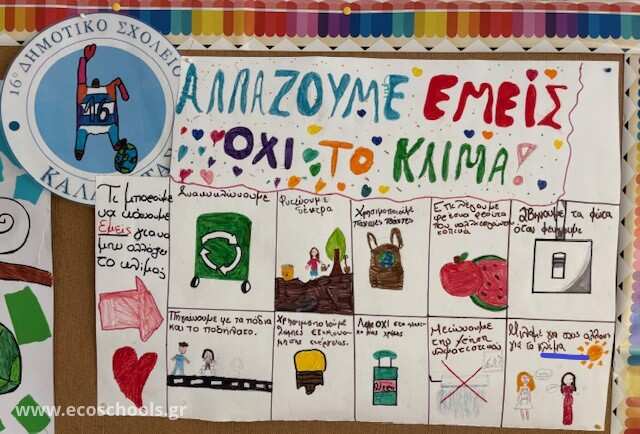 16° ΔΗΜΟΤΙΚΟ ΣΧΟΛΕΙΟ
ΑΛΛΑΖΟΥΜΕ ΕΜΕΙΣ
ΌΧΙ ΤΟ ΚΛΙΜΑ!
Τι μπορούμε
να κάνουμε
Εμείς για να
μην αλλάξει
το κλίμα;
Ανακυκλώνουμε
Φυτεύουμε
δέντρα
Χρησιμοποιούμε
πάνινες τσάντες
Επιλέγουμε
φρέσκα φρούτα
που καλλιεργούνται
τοπικά
Σβήνουμε τα φώτα
όταν φεύγουμε
Πηγαίνουμε με τα πόδια
και το ποδήλατο.
Χρησιμοποιούμε
λάμπες εξοικονό-
μησης ενέργειας.
Λέμε ΌΧΙ στα πλαστι-
κά μιας χρήσης
Μειώνουμε
της χρήση
κλιματιστικού
Μιλάμε για τους άλλους
για το κλίμα
www.ecoschools.gr